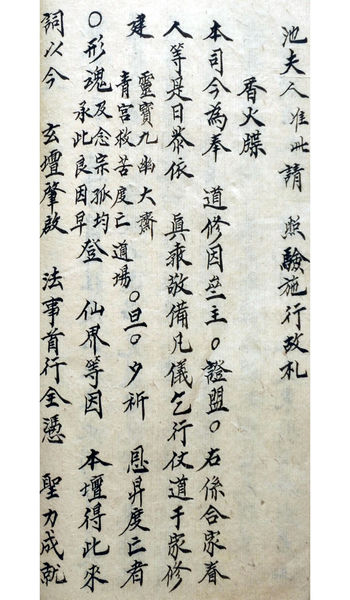 池夫人准此請 照驗施行故札
香火牒
本司今為奉 道修因亝主○證盟○右係合家眷
人等是日恭依 真乘敬備凡儀乞行仗道于家修
建 靈寶九幽大齋
青宮救苦度亡道場○旦○夕祈 恩昇度亡者
○形魂及念宗孤均
承此良因早登 仙界等因 本壇得此來
詞以今 玄壇肇啟 法事首行全憑 聖力成就